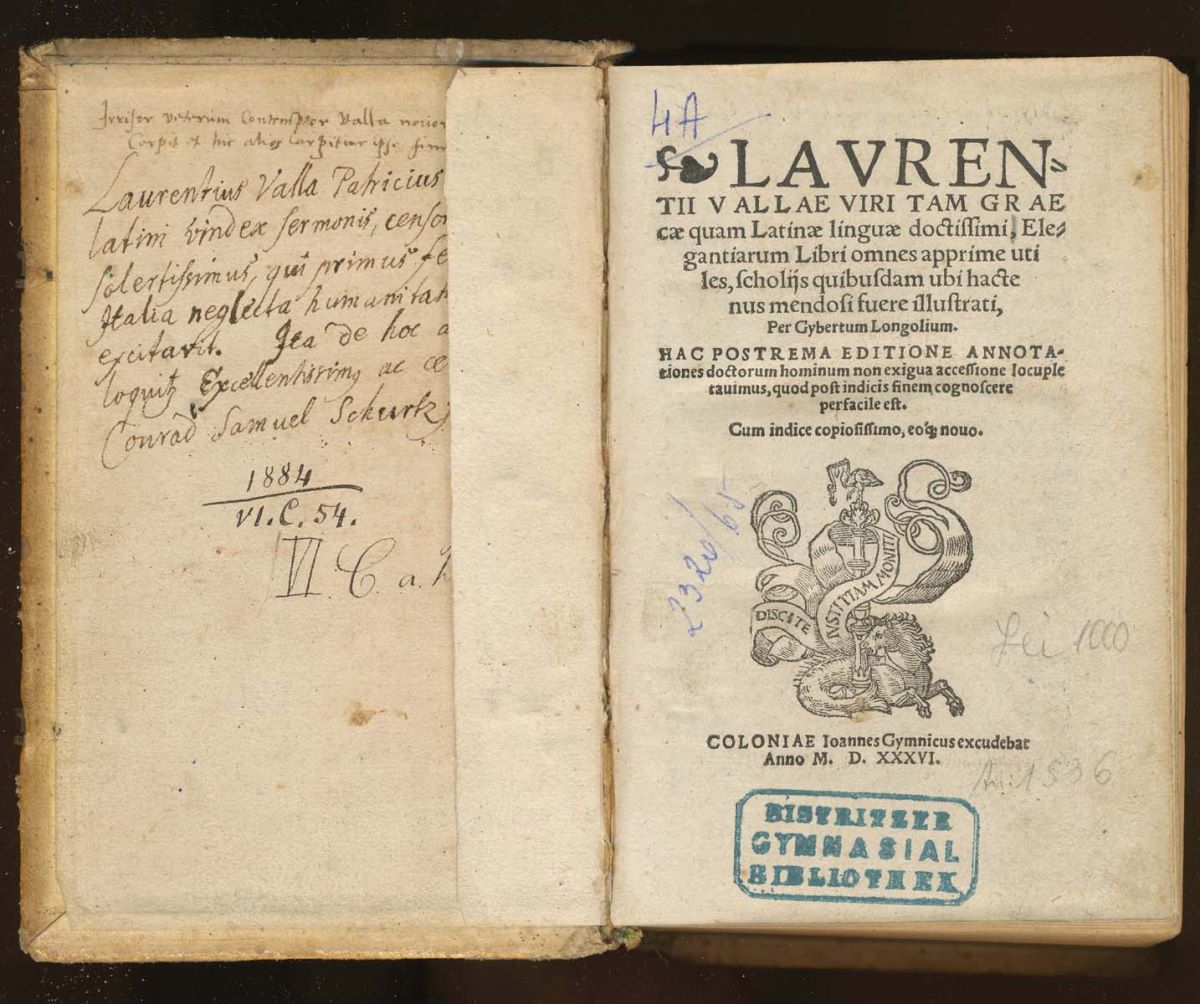 Irrisor veterum Contemptor Valla
Carpit et hic alios carpitur ipse
Laurentius Valla Patricius
latini vindex sermonis, censor
solertissimus, qui primus fe
Italia neglecta humanitat
excitavit. Ita de hoc a
loquitꝫ Excellentissimꝰ ac ce
Conrad Samuel Schurtz
1884
VI. C. 54.
VI. C. a.
4A
LAVREN⸗
TII VALLAE VIRI TAM GRAE
cæ quam Latinæ linguæ doctiſſimi, Ele⸗
gantiarum Libri omnes apprime uti
les, ſcholijs quibuſdam ubi hacte
nus mendoſi fuere illuſtrati,
Per Gybertum Longolium.
HAC POSTREMA EDITIONE ANNOTA-
tiones doctorum hominum non exigua acceſſione locuple
tauimus, quod poſt indicis finem cognoſcere
perfacile eſt.
Cum indice copioſiſſimo, eoq́ꝫ nouo.
2320/65
DISCITE IVSTITIAM MONITI
Lei 1000
COLONIAE Ioannes Gymnicus excudebat
Anno M. D. XXXVI.
1536
BISTRITZER
GYMNASIAL
BIBLIOTHEK